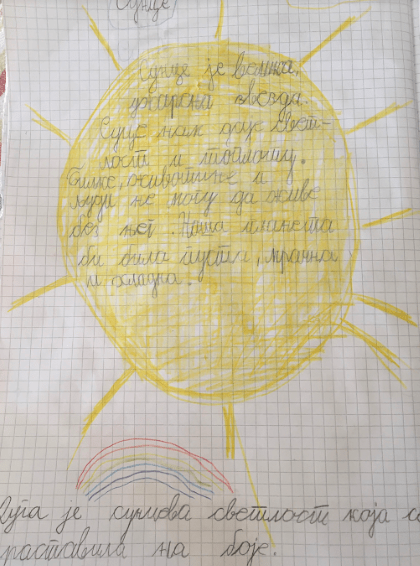 Сунце
Сунце је велика,
ужарена звезда.
Сунце нам даје свет-
лост и топлоту.
Билке, животиње и
људи не могу да живе
без њег. Наша планета
би била пуста, мрачна
и хладна.
Дуга је сунчева светлост која се
раставила на боје.